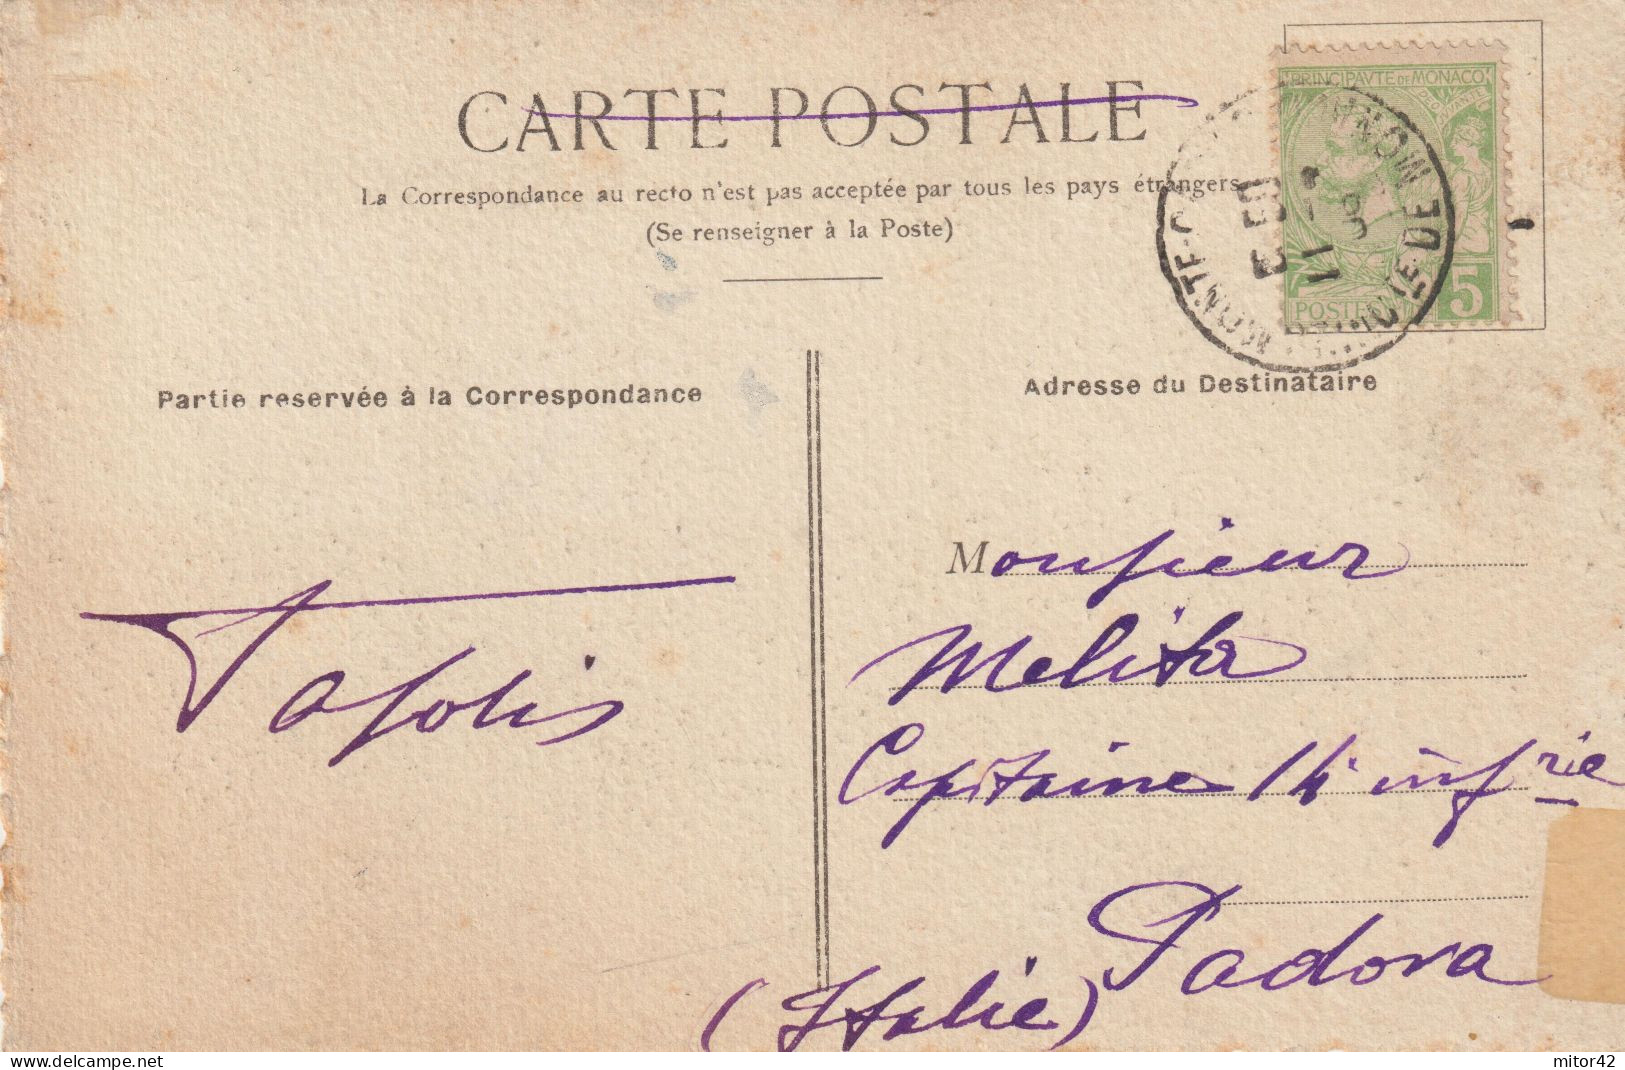 CARTE POSTALE
La Correspondance au recto n'est pas acceptée par tous les pays étrangers
(Se renseigner à la Poste)
PRINCIPAVTE DE MONACO
DEO JUVANTE
POSTE
5
MONTE-
11
Partie reservée à la Correspondance
Adresse du Destinataire
Monsieur
Melita
Capitaine 14 inf rie
Padova
(Italie)
mitor42